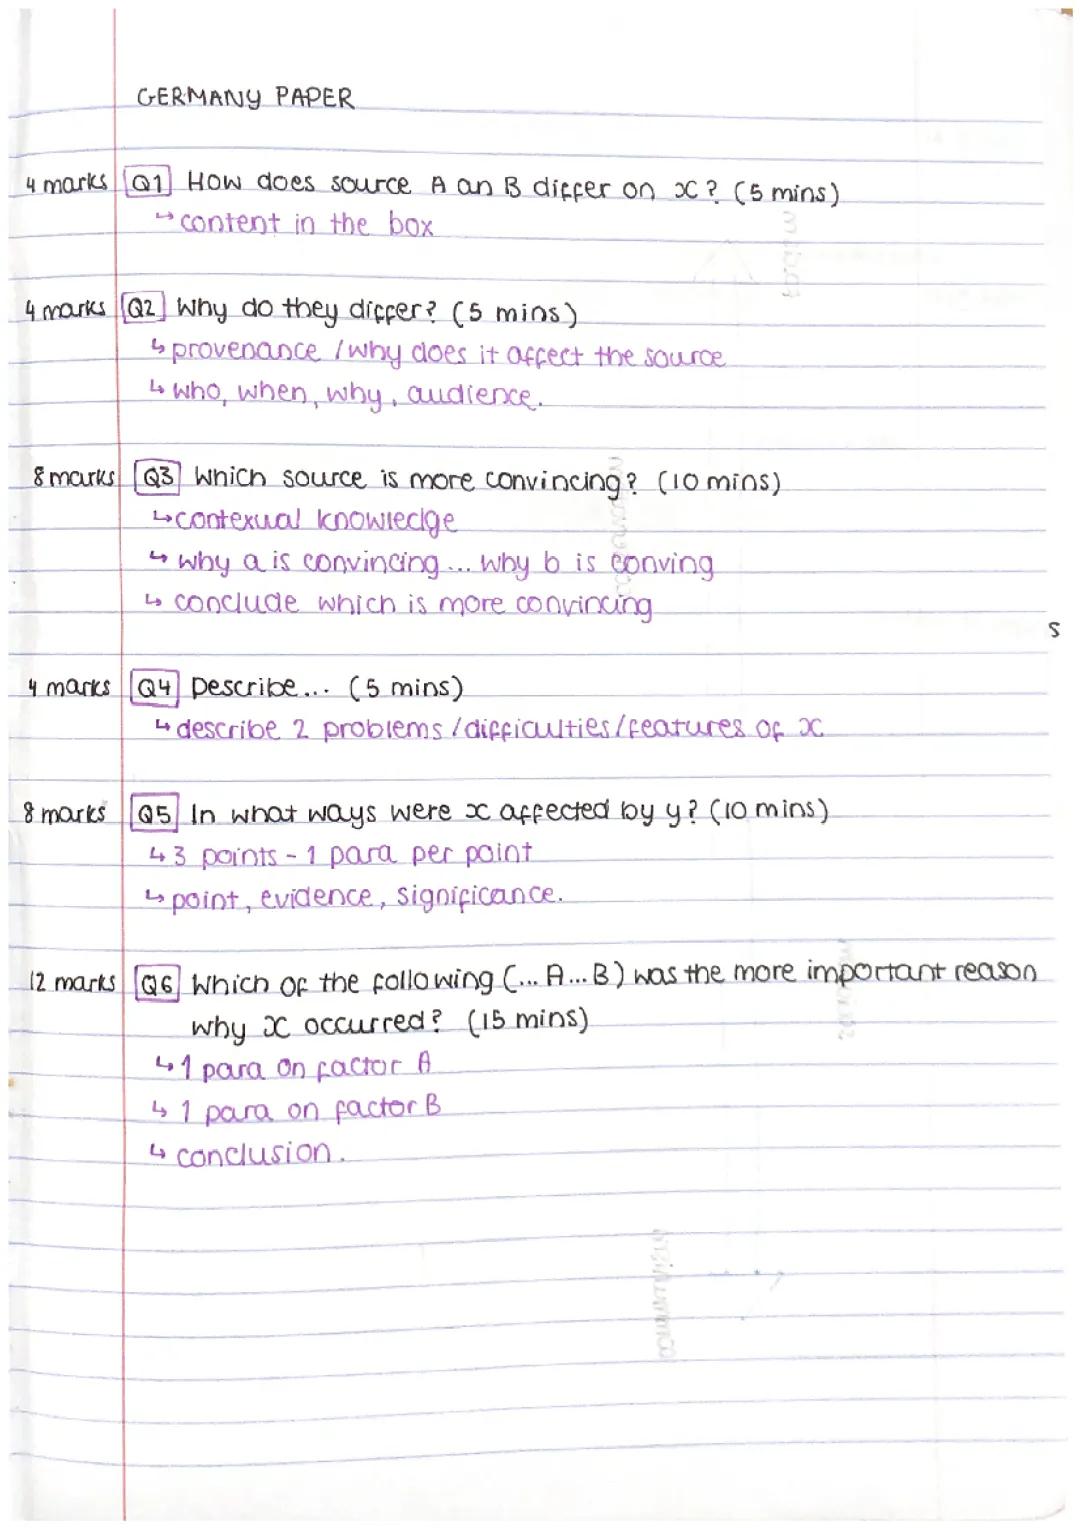 GERMANY PAPER
4 marks Q1 How does source A an B differ on x? (5 mins)
↳ content in the box
4 marks Q2 Why do they differ? (5 mins)
↳ provenance / why does it affect the source
↳ who, when, why, audience.
8 marks Q3 Which source is more convincing? (10 mins)
↳ contexual knowledge
↳ why a is convincing... why b is conving
↳ conclude which is more convincing
s
4 marks Q4 Describe... (5 mins)
↳ describe 2 problems / difficulties / features of x
8 marks Q5 In what ways were x affected by y? (10 mins)
↳ 3 points - 1 para per point
↳ point, evidence, significance.
12 marks Q6 Which of the following (... A... B) was the more important reason
why x occurred? (15 mins)
↳ 1 para on factor A
↳ 1 para on factor B
↳ conclusion.